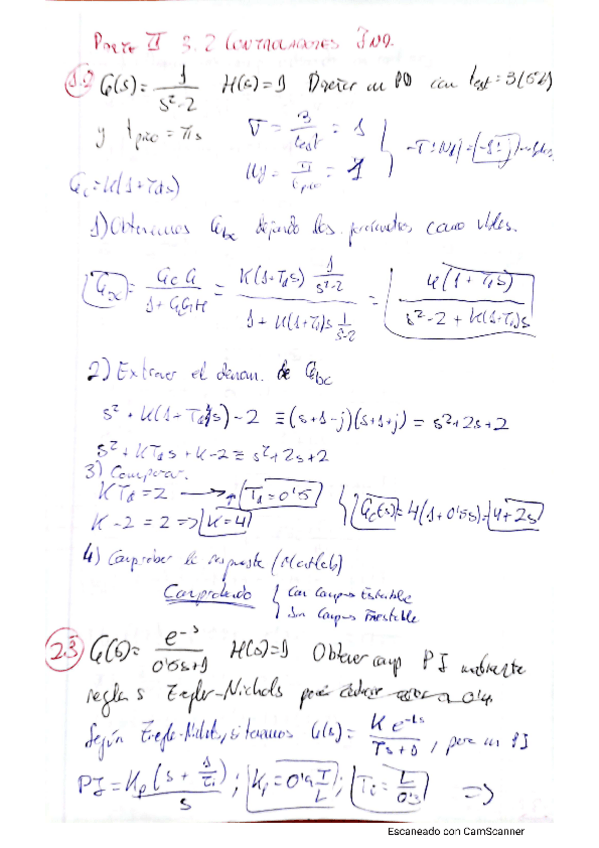 Parte II 3.2 Controladores Ind.
1.) G(s) = 1/(s²-2) H(s)=1 un PD con test = 3(s)
y tpico = π s σ = 3/test = 1
Wd = π/tpico = 1
Gc = K(1+Tds)
1) Obtenemos Gbc dejando los parámetros como vbles.
Gbc = GcG/(1+GcGH) = K(1+Tds) 1/(s²-2) / (1 + K(1+Td)s 1/(s-2)) = K(1+Tds) / (s²-2+K(1+Td)s)
2) Extraer el denom. de Gbc
s² + K(1+Tds) - 2 ≡ (s+1-j)(s+1+j) = s²+2s+2
s² + KTds + K-2 ≡ s²+2s+2
3) Comparar.
KTd = 2 → Td = 0'5
K-2 = 2 => K=4
Gc(s) = 4(1+0'5s) = 4+2s
4) Comprobar la respuesta (Matlab)
Comprobado { Con compens Estable
Sin compens Inestable
2.3 G(s) = e^-s/(0'5s+1) H(s)=1 Obtener comp PI mediante
reglas Ziegler-Nichols para
Según Ziegle-Nichols, si tenemos G(s) = K e^-Ls/(Ts+1), para un PI
PI = Kp(s + 1/Ti)/s ; Kp = 0'9 T/L ; Ti = L/0'3 =>
Escaneado con CamScanner